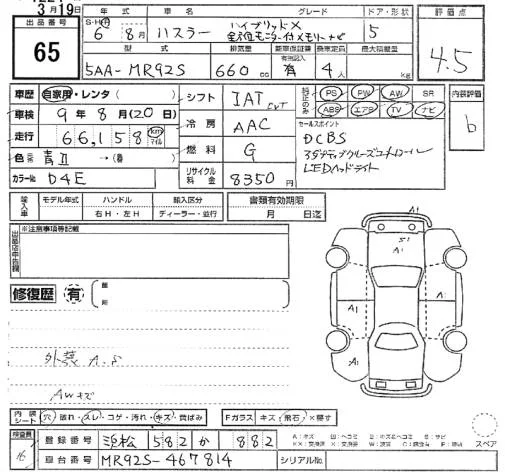 3月19日
出品番号
65
年式 車名 グレード ドア・形状 評価点
S・H・R 6年 8月 ハスラー ハイブリッドX 全方位モニター付メモリーナビ 5
4.5
型式 排気量 新車保証書 乗車定員 最大積載量
5AA-MR92S 660cc 有 4人 kg
車歴 自家用・レンタ( ) シフト IAT CVT PS PW AW SR 内装評価
車検 9年8月(20日) ABS エアB TV ナビ b
冷房 AAC セールスポイント
走行 66,158 km マイル DCBS
色 青Ⅱ →( ) 燃料 G
LEDヘッドライト
カラーNo. D4E リサイクル料金 8350円
輸入車 モデル年式 ハンドル 輸入区分 書類有効期限
右H・左H ディーラー・並行 月 日迄
※注意事項等記載 A1
A1
修復歴 有
A1 A1
外装 A.S
A1
AWキズ
内装シート 穴 破れ・スレ・コゲ・汚れ・キズ・黄ばみ Fガラス キズ・飛石・×要す
検査員 登録番号 浜松 582 か 882
スペア
16 車台番号 MR92S-467814 シリアルNo.